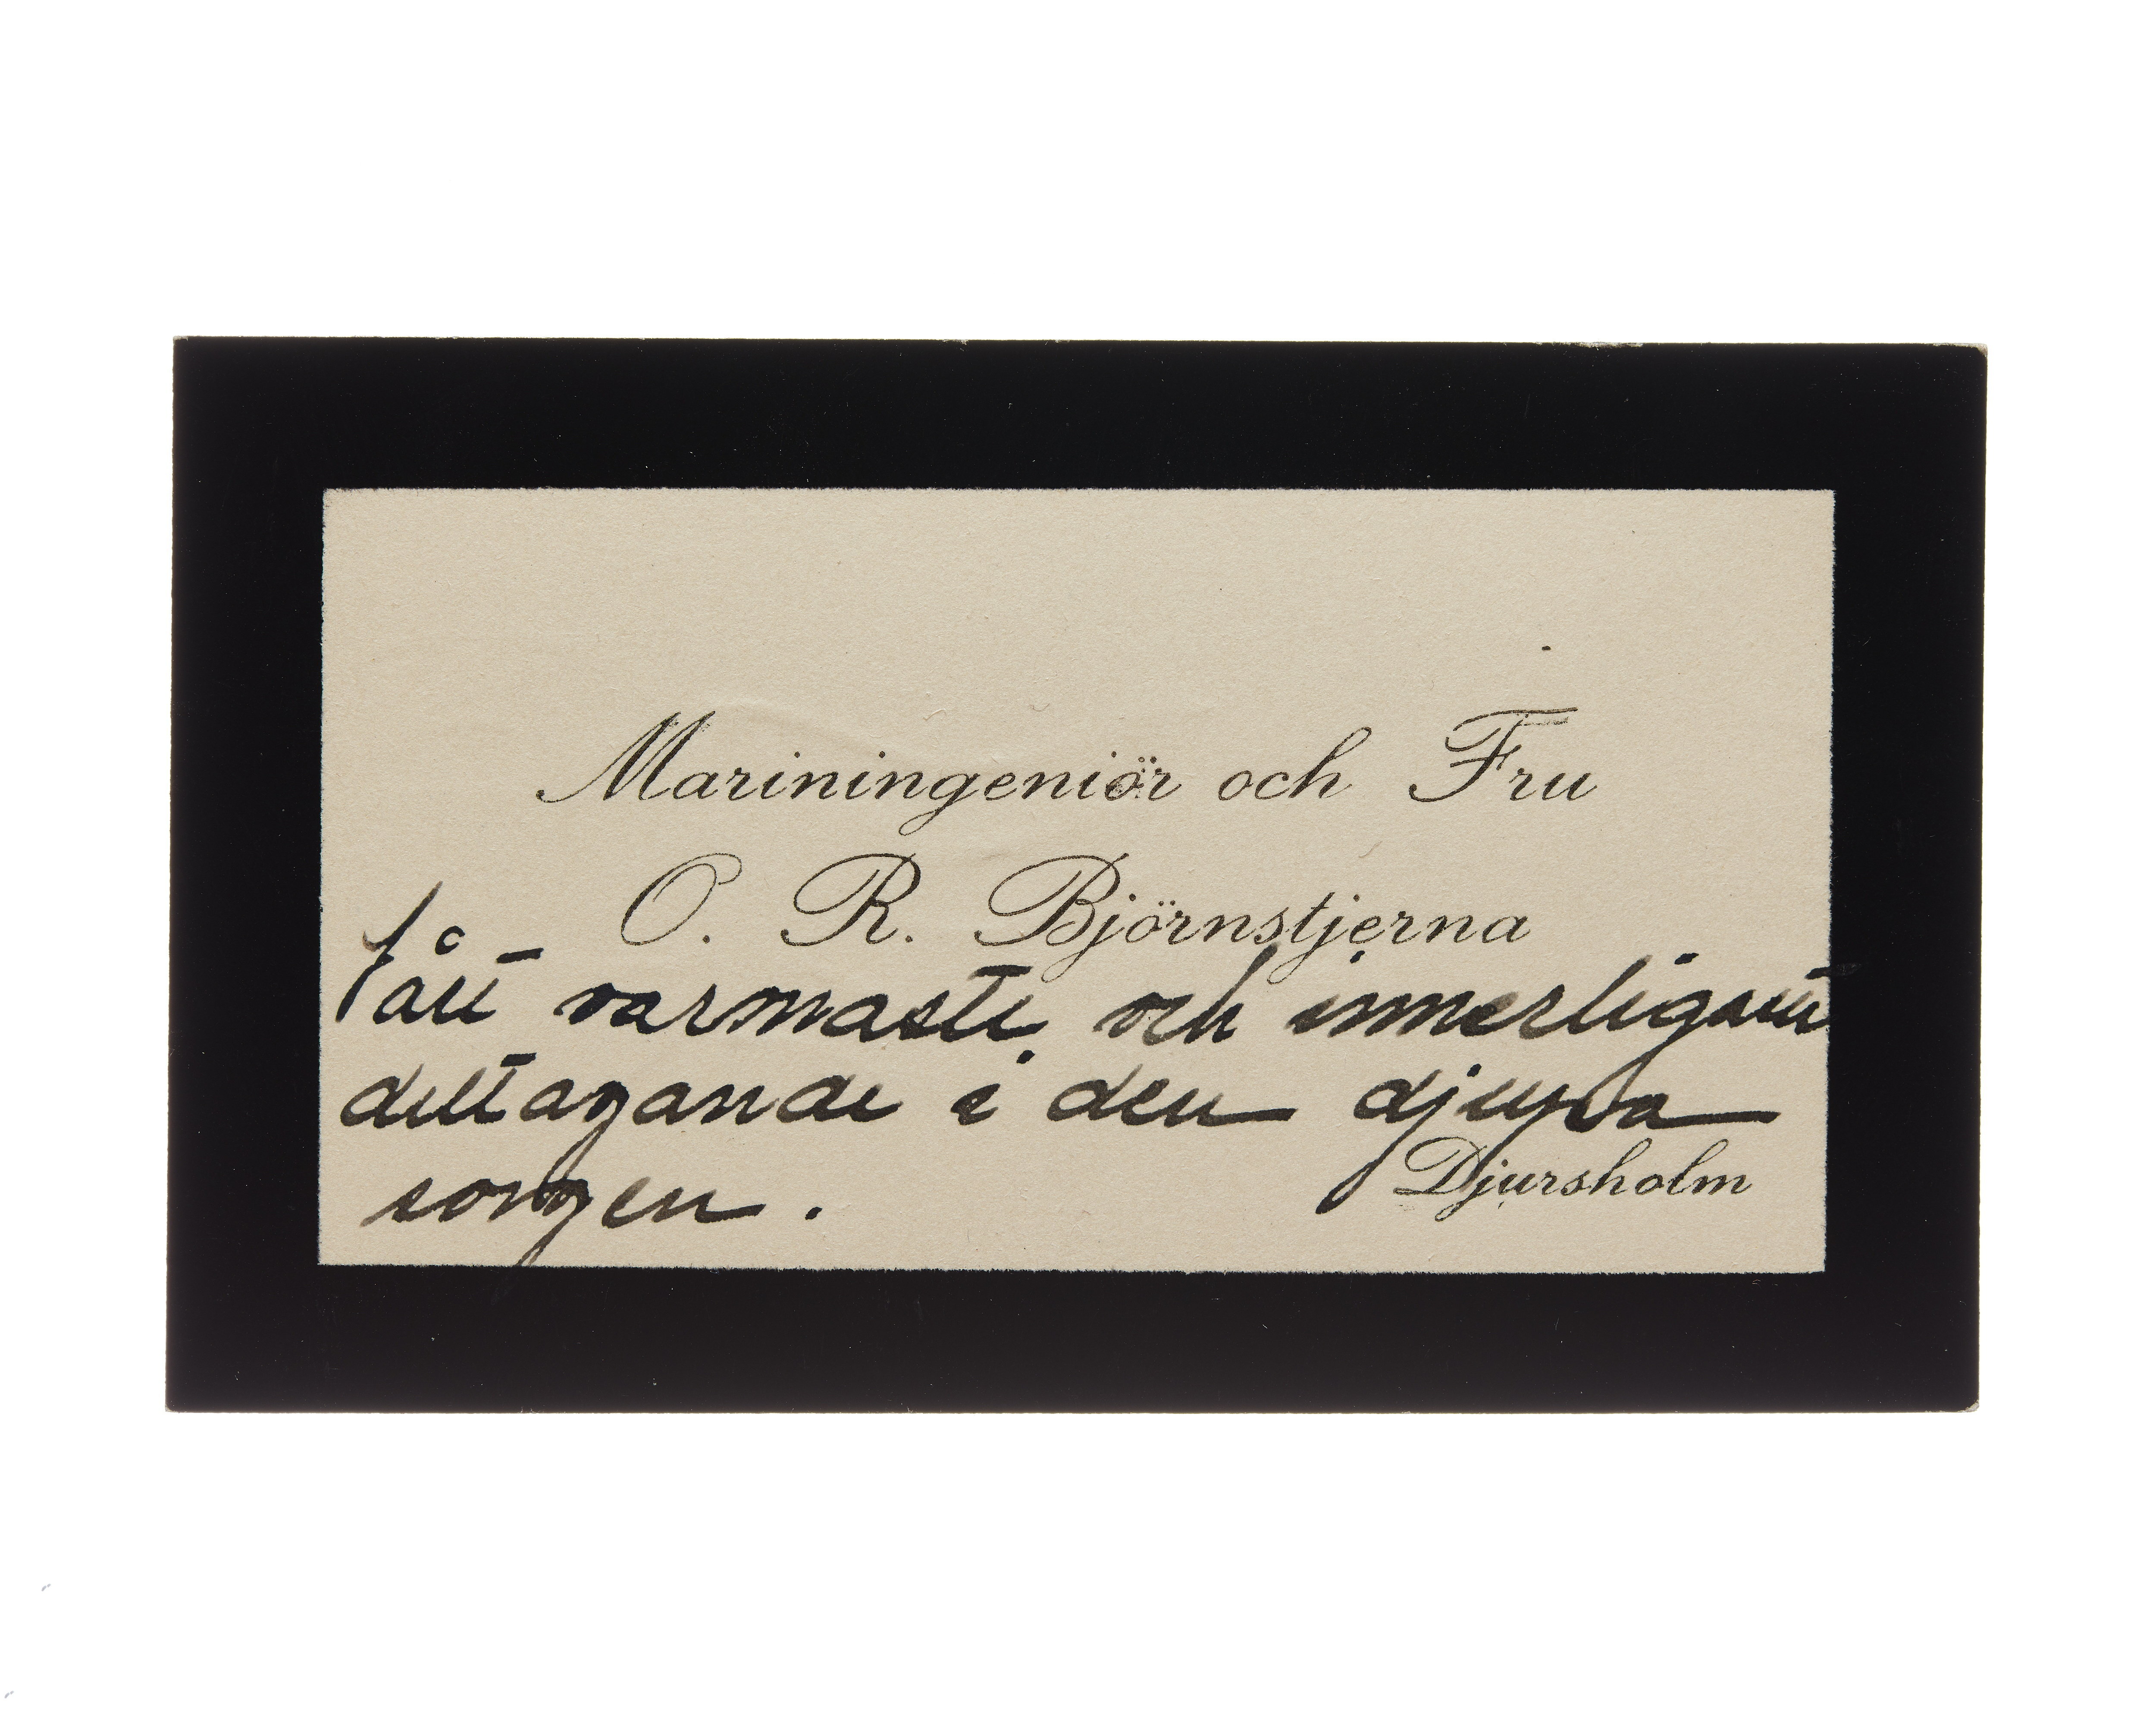 Mariningeniör och Fru
O. R. Björnstjerna
vårt varmaste och innerligaste
deltagande i den djupa
Djursholm
sorgen.